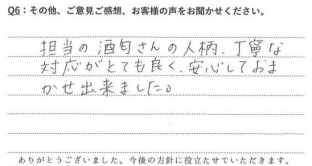 Q6：その他、ご意見ご感想、お客様の声をお聞かせください。
担当の酒匂さんの人柄、丁寧な
対応がとても良く、安心しておま
かせ出来ました。
ありがとうございました。今後の方針に役立たせていただきます。